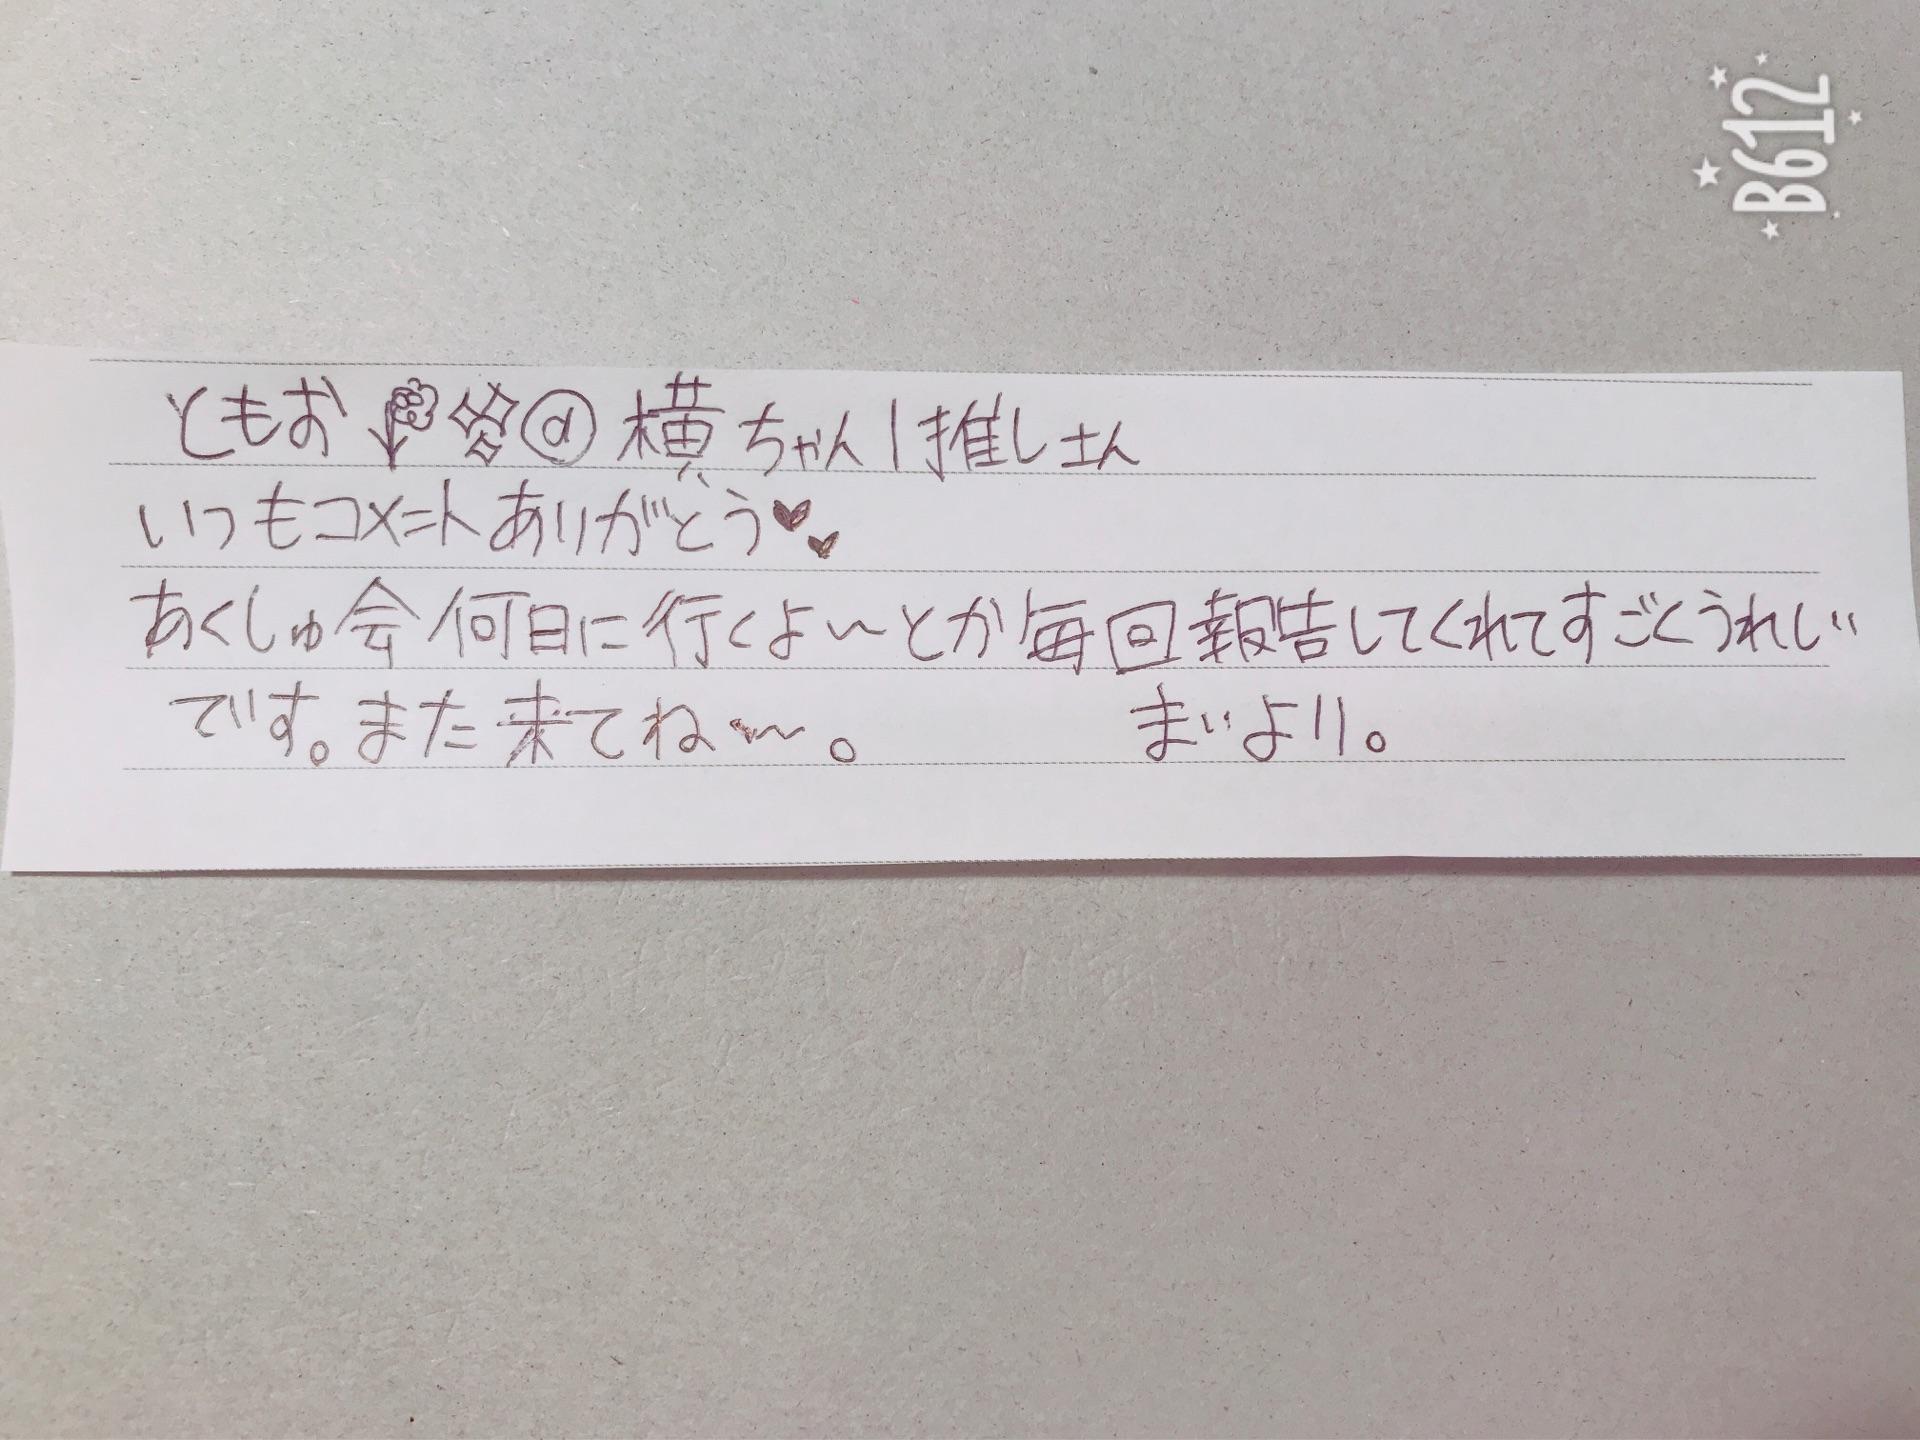 B612
ともお🌹✨@横ちゃん1推しさん
いつもコメントありがとう♥♥
あくしゅ会何日に行くよ〜とか毎回報告してくれてすごくうれしい
です。また来てね〜。 まいより。